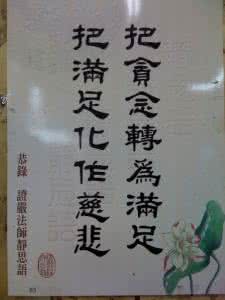 把貪念轉為滿足
把滿足化作慈悲
恭錄 證嚴法師靜思語